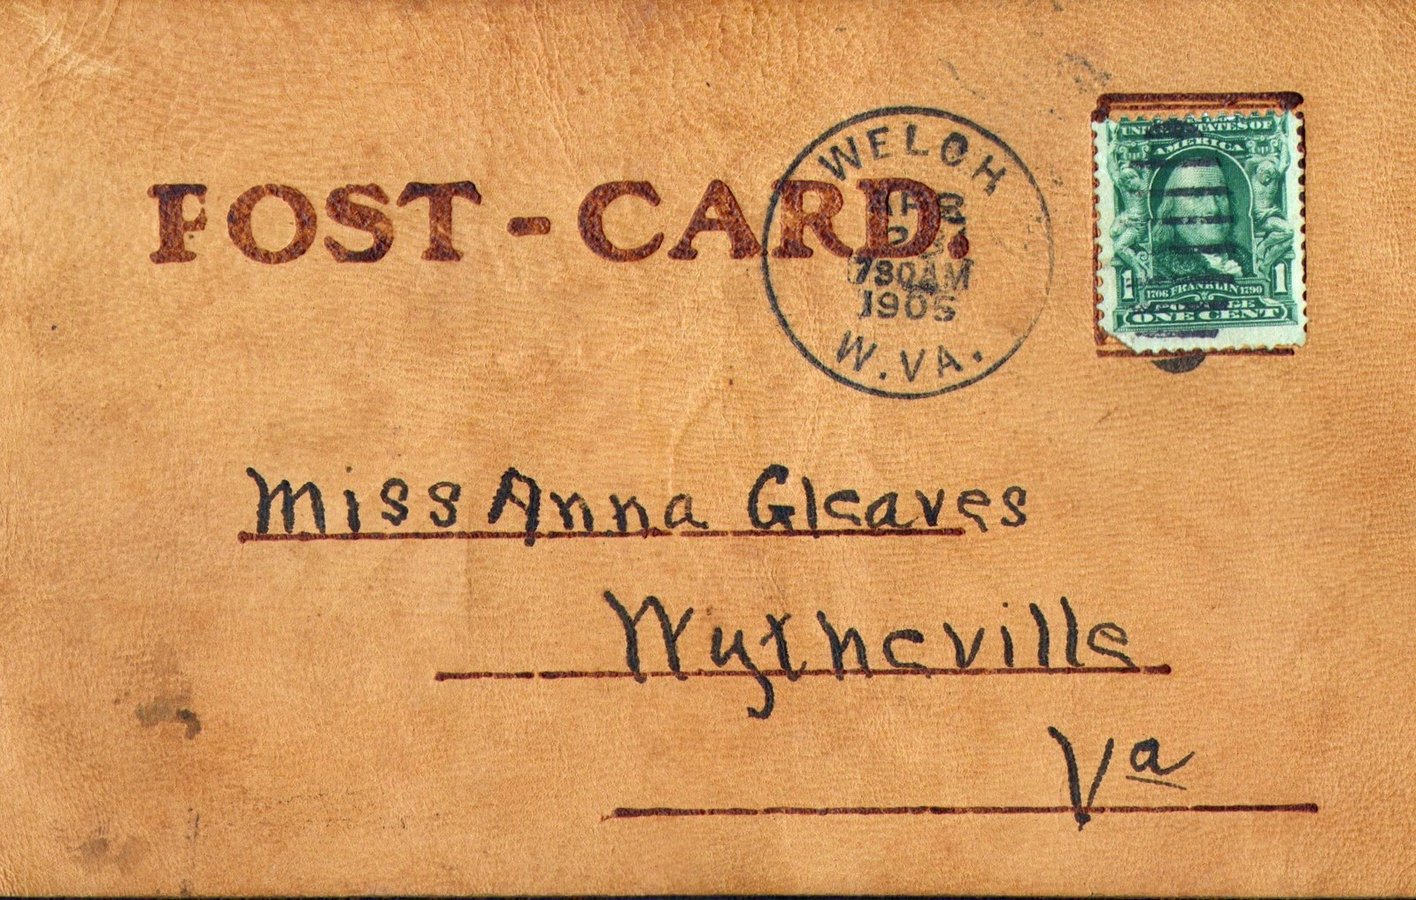 POST-CARD.
WELCH
APR
730AM
1905
W.VA.
UNITED STATES OF
AMERICA
1 1706 FRANKLIN 1790 1
POSTAGE
ONE CENT
Miss Anna Gleaves
Wytheville
Va